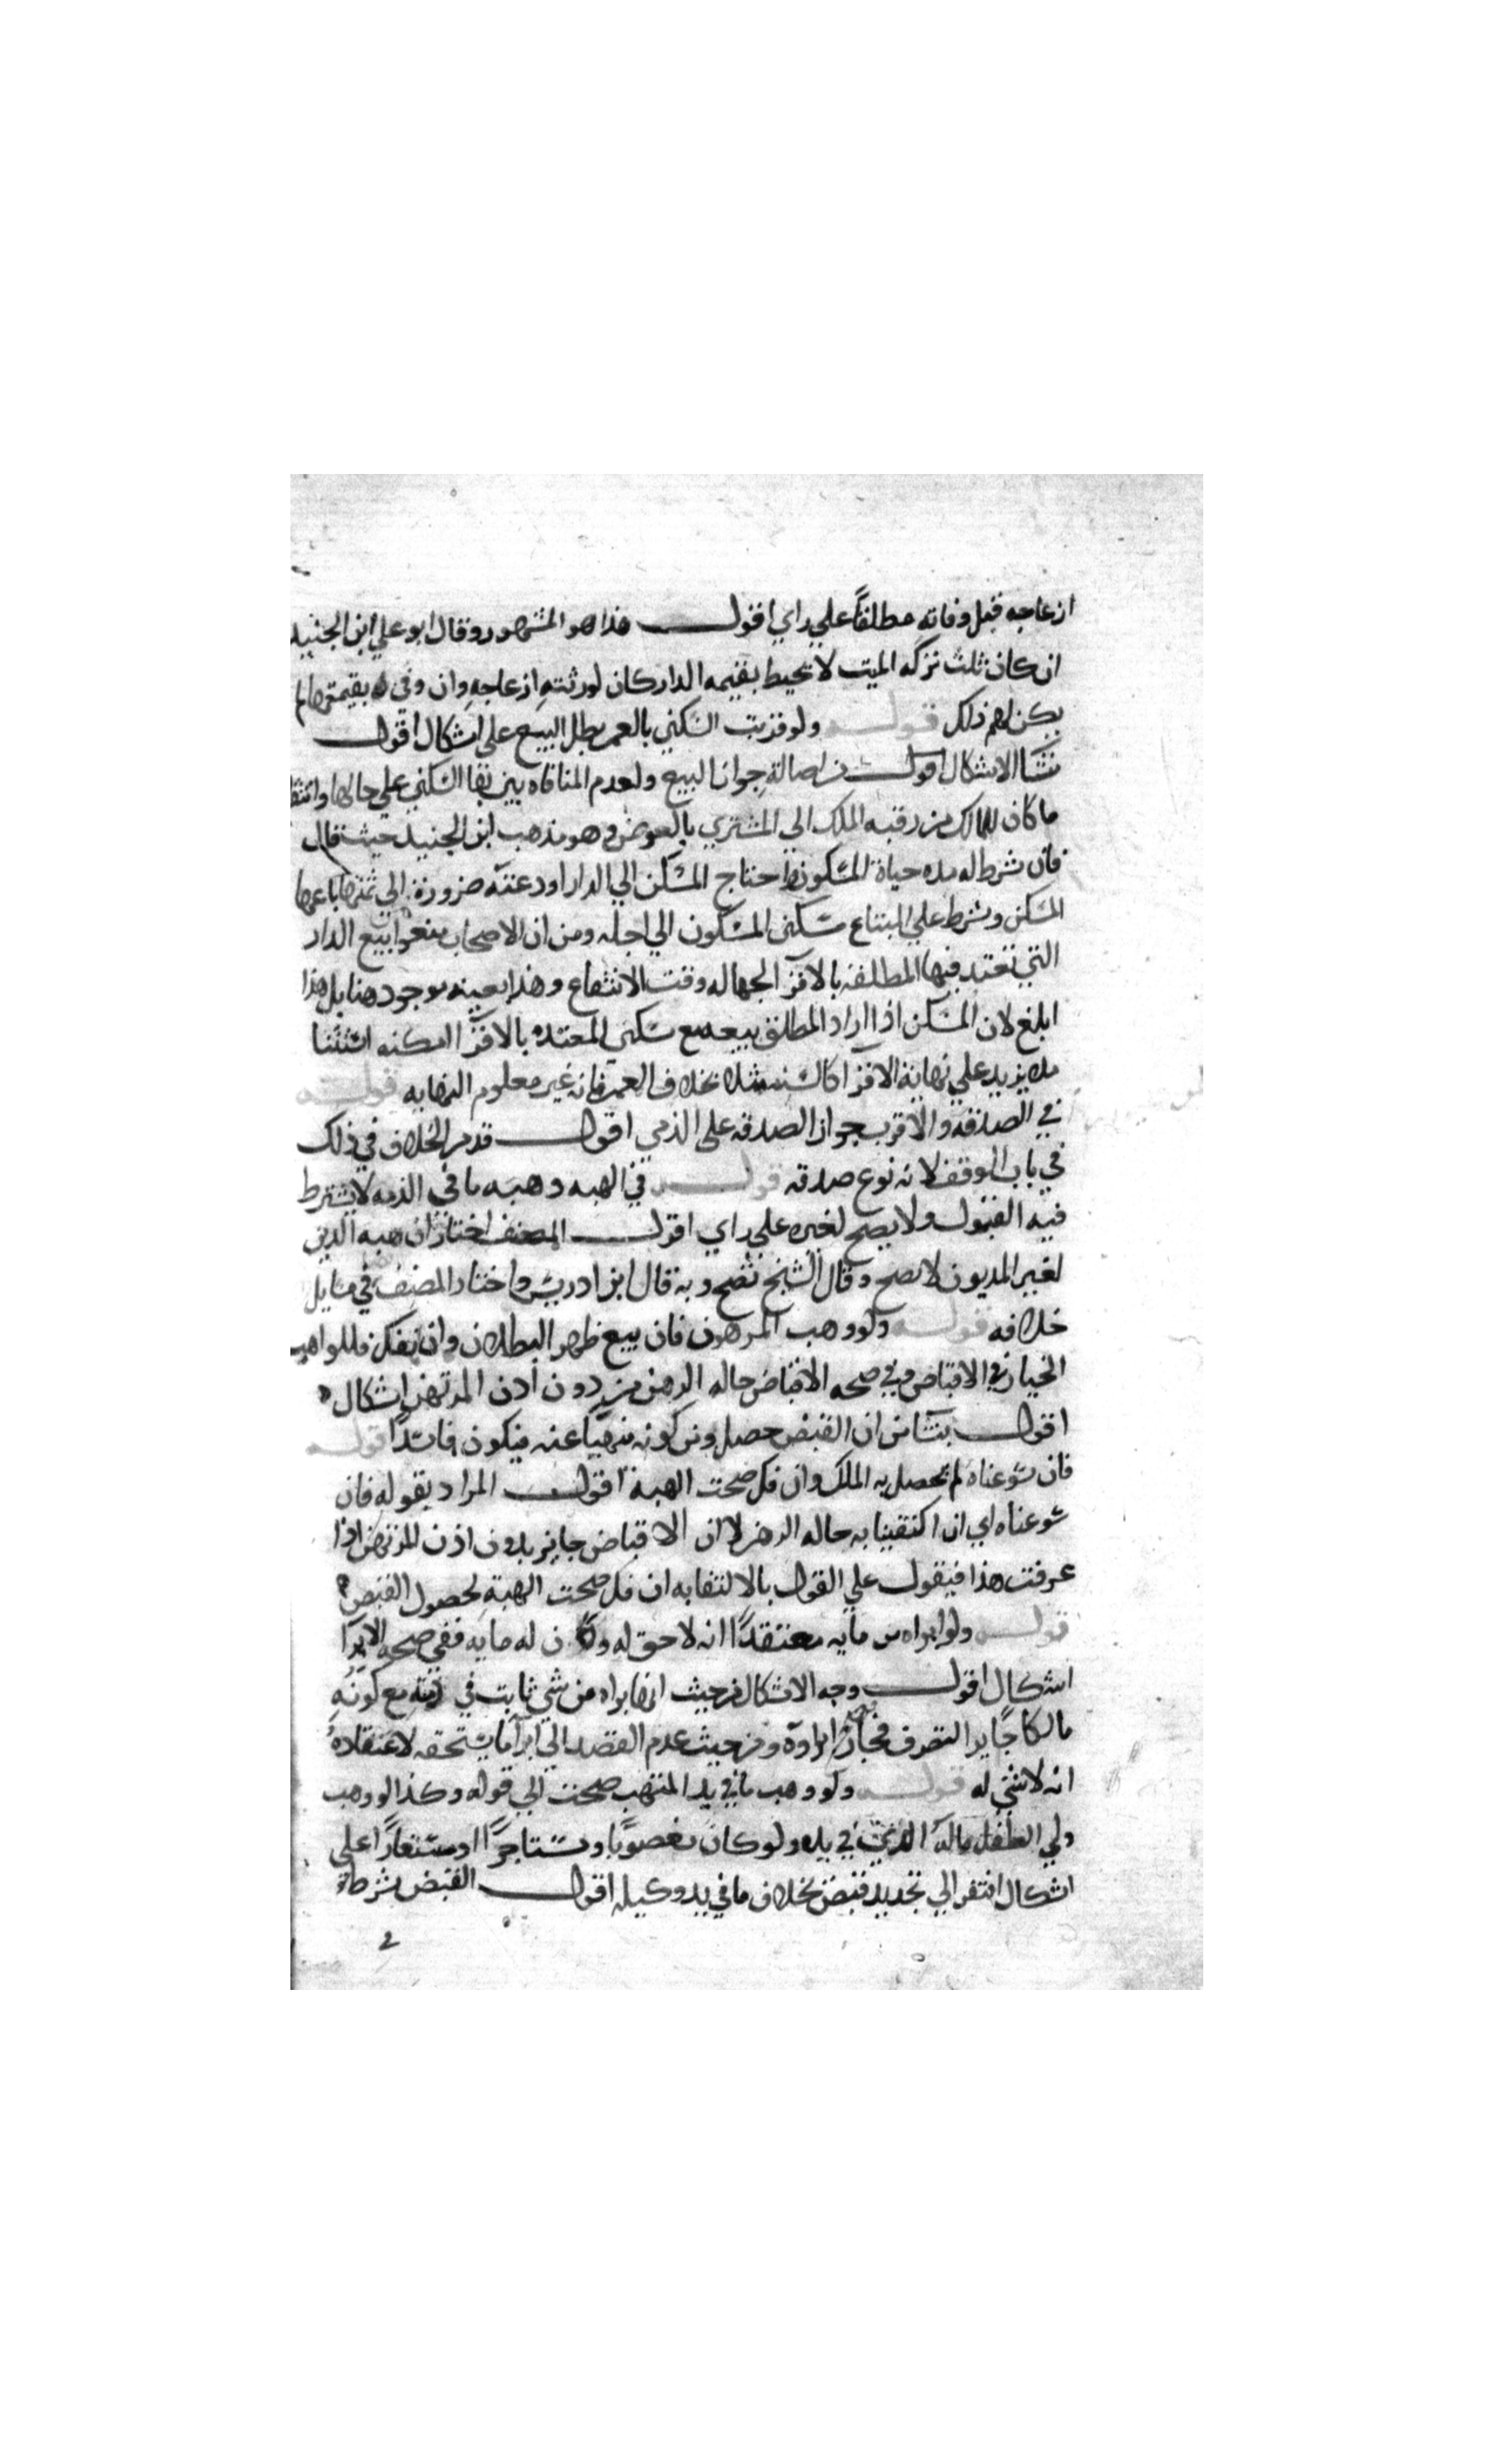 ازعاجه قبل وفاته مطلقاً علي راي اقول هذا هو المشهور وقال ابو علي ابن الجنيد
ان كان ثلث تركه الميت لا تحيط بقيمه الدار كان لورثته ازعاجه وان وفى بقيمتها لم
يكن لهم ذلك قوله ولو قرنت السكني بالعمر بطل البيع على اشكال اقول
ينشا الاشكال اقول من اصالة جواز البيع ولعدم المنافاه بين بقا السكني علي حالها وانتقا
ما كان للمالك من رقبه الملك الي المشتري بالعوض وهو مذهب ابن الجنيد حيث قال
فان شرط له مده حياة المسكون واحتاج المسكن الي الدار او دعته ضرورة الي ثمنها باعها
المسكن وشرط علي المبتاع سكنى المسكون الي اجله ومن ان الاصحاب منعوا بيع الدار
التي تعتد فيها المطلقه بالاقرآ لجهاله وقت الانتفاع وهذا بعينه موجود هنا بل هذا
ابلغ لان المسكن اذا اراد المطلق بيعه مع سكنى المعتده بالاقرآ امكنه استثنا
مده يزيد علي نهاية الاقرآ كالسنه مثلا بخلاف العمر فانه غير معلوم النهايه قوله
في الصدقه والاقرب جواز الصدقه على الذمي اقول قد مر الخلاف في ذلك
في باب الوقف لانه نوع صدقه قوله في الهبه وهبه ما في الذمه لا يشترط
فيه القبول ولا يصح لغيره علي راي اقول المصنف اختار ان هبه الدين
لغير المديون لا تصح وقال الشيخ تصح وبه قال ابن ادريس واختار المصنف في مسايل
خلافه قوله ولو وهب المرهون فان بيع ظهر البطلان وان انفك فللواهب
الخيار في الاقباض وفي صحه الاقباض حاله الرهن من دون اذن المرتهن اشكال
اقول ينشا من ان القبض حصل ومن كونه منهيا عنه فيكون فاسدا قوله
فان سوغناه لم يحصل به الملك وان فك صحت الهبة اقول المراد بقوله فان
سوغناه اي ان اكتفينا به حاله الرهن لا ان الاقباض جايز بدون اذن المرتهن اذا
عرفت هذا فيقول علي القول بالاكتفا به ان فك صحت الهبة لحصول القبض
قوله ولو ابراه من مايه معتقدا انه لا حق له وكان له مايه ففي صحه الابرا
اشكال اقول وجه الاشكال من حيث انه ابراه من شي ثابت في ذمته مع كونه
مالكا جايز التصرف فجاز ابراوه ومن حيث عدم القصد الي ابرآ ما يستحقه لاعتقاده
انه لا شي له قوله ولو وهب ما في يد المتهب صحت الي قوله وكذا لو وهب
ولي الطفل ماله الذي في يده ولو كان مغصوبا او مستاجرا او مستعارا علي
اشكال افتقر الي تجديد قبض بخلاف ما في يد وكيله اقول القبض شرط